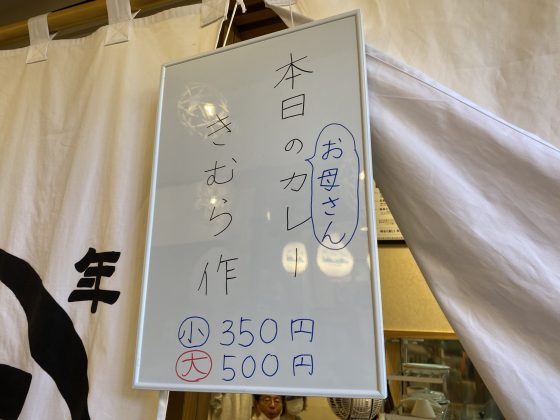 本日のカレー
お母さん
きむら作
小 350円
大 500円
年